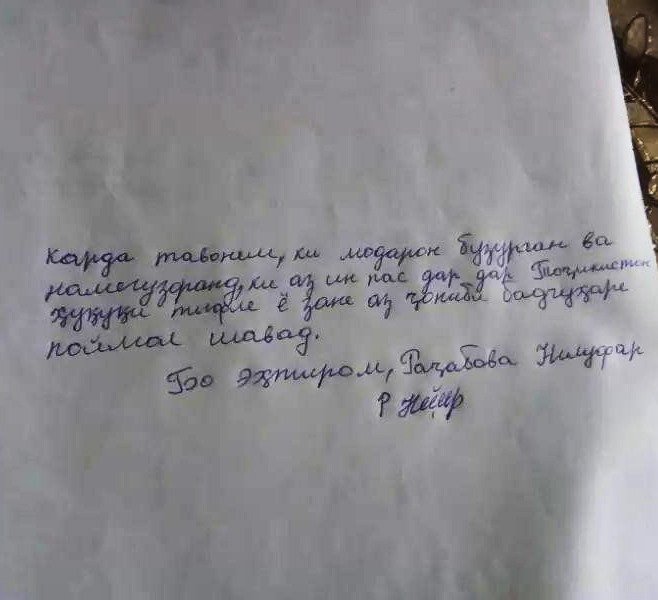 карда тавонем, ки модарон бузурган ва
намегузоранд, ки аз ин пас дар дар Тоҷикистон
ҳуқуқи тифле ё зане аз ҷониби бадгуҳаре
поймол шавад.
Бо эҳтиром, Раҷабова Нилуфар